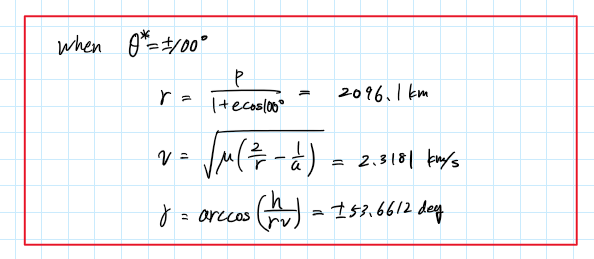 when θ* = ±100°
r = p / (1 + e cos100°) = 2096.1 km
v = √(μ(2/r − 1/a)) = 2.3181 km/s
γ = arccos(h/rv) = ±53.6612 deg